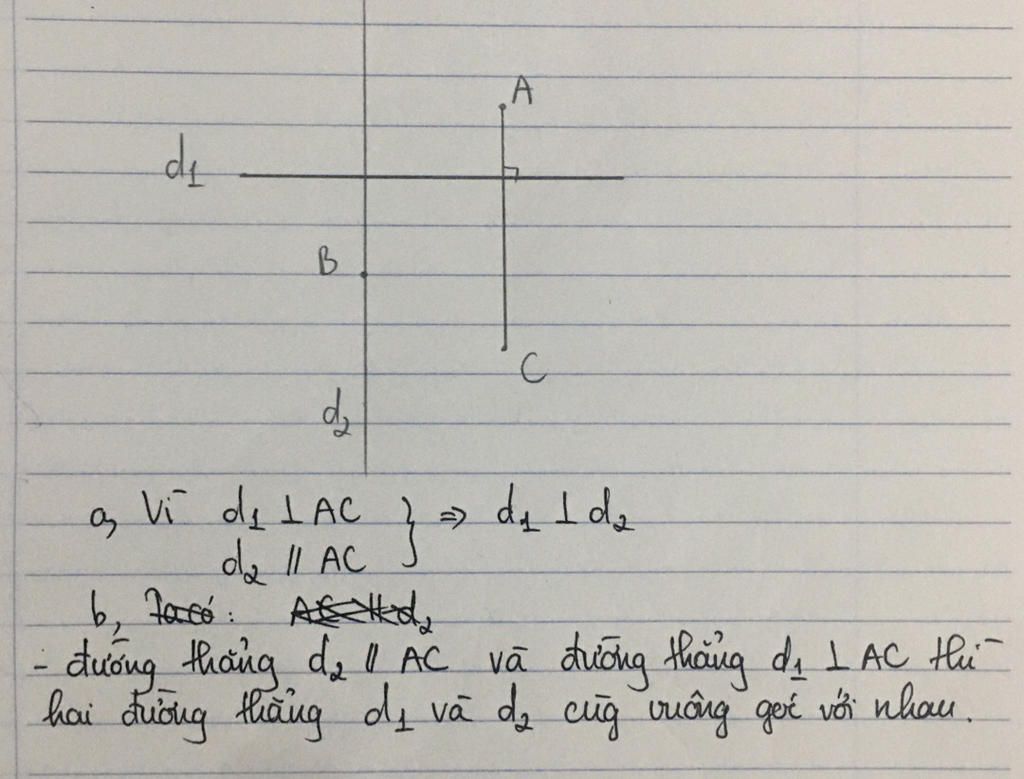 A
d1
B
C
d2
a, Vì d1 ⊥ AC } ⇒ d1 ⊥ d2
d2 // AC
b, Ta có: AC // d2
- đường thẳng d2 // AC và đường thẳng d1 ⊥ AC thì
hai đường thẳng d1 và d2 cũg vuông góc với nhau.